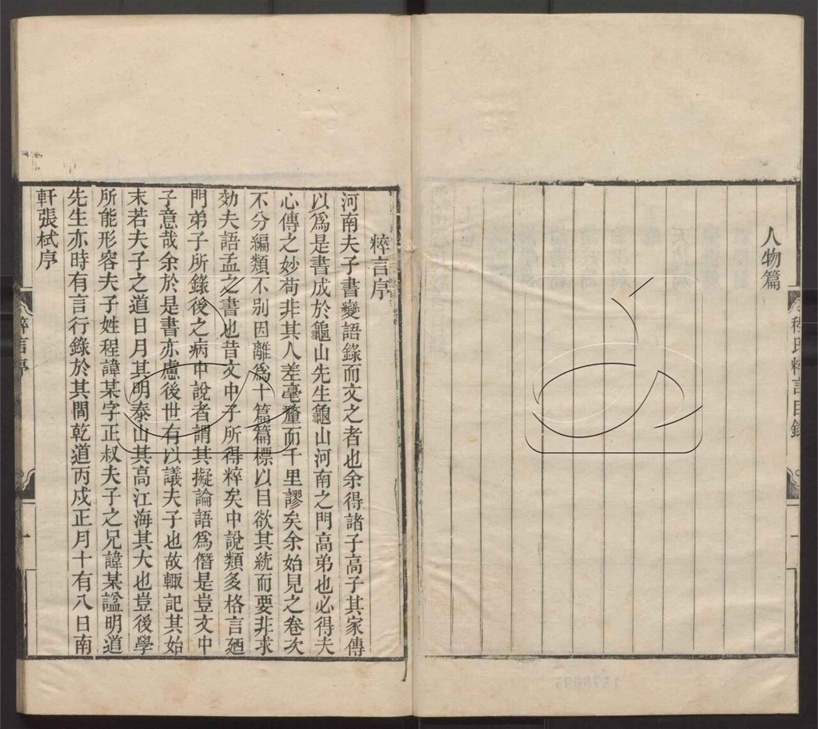 人物篇
程氏粹言目錄
粹言序
河南夫子書變語錄而文之者也余得諸子高子其家傳
以爲是書成於龜山先生龜山河南之門高弟也必得夫
心傳之妙苟非其人差毫釐而千里謬矣余始見之卷次
不分編類不別因離爲十篇篇標以目欲其統而要非求
効夫語孟之書也昔文中子所得粹矣中說類多格言廼
門弟子所錄後之病中說者謂其擬論語爲僭是豈文中
子意哉余於是書亦慮後世有以議夫子也故輒記其始
末若夫子之道日月其明泰山其高江海其大也豈後學
所能形容夫子姓程諱某字正叔夫子之兄諱某諡明道
先生亦時有言行錄於其間乾道丙戌正月十有八日南
軒張栻序
粹言序
一